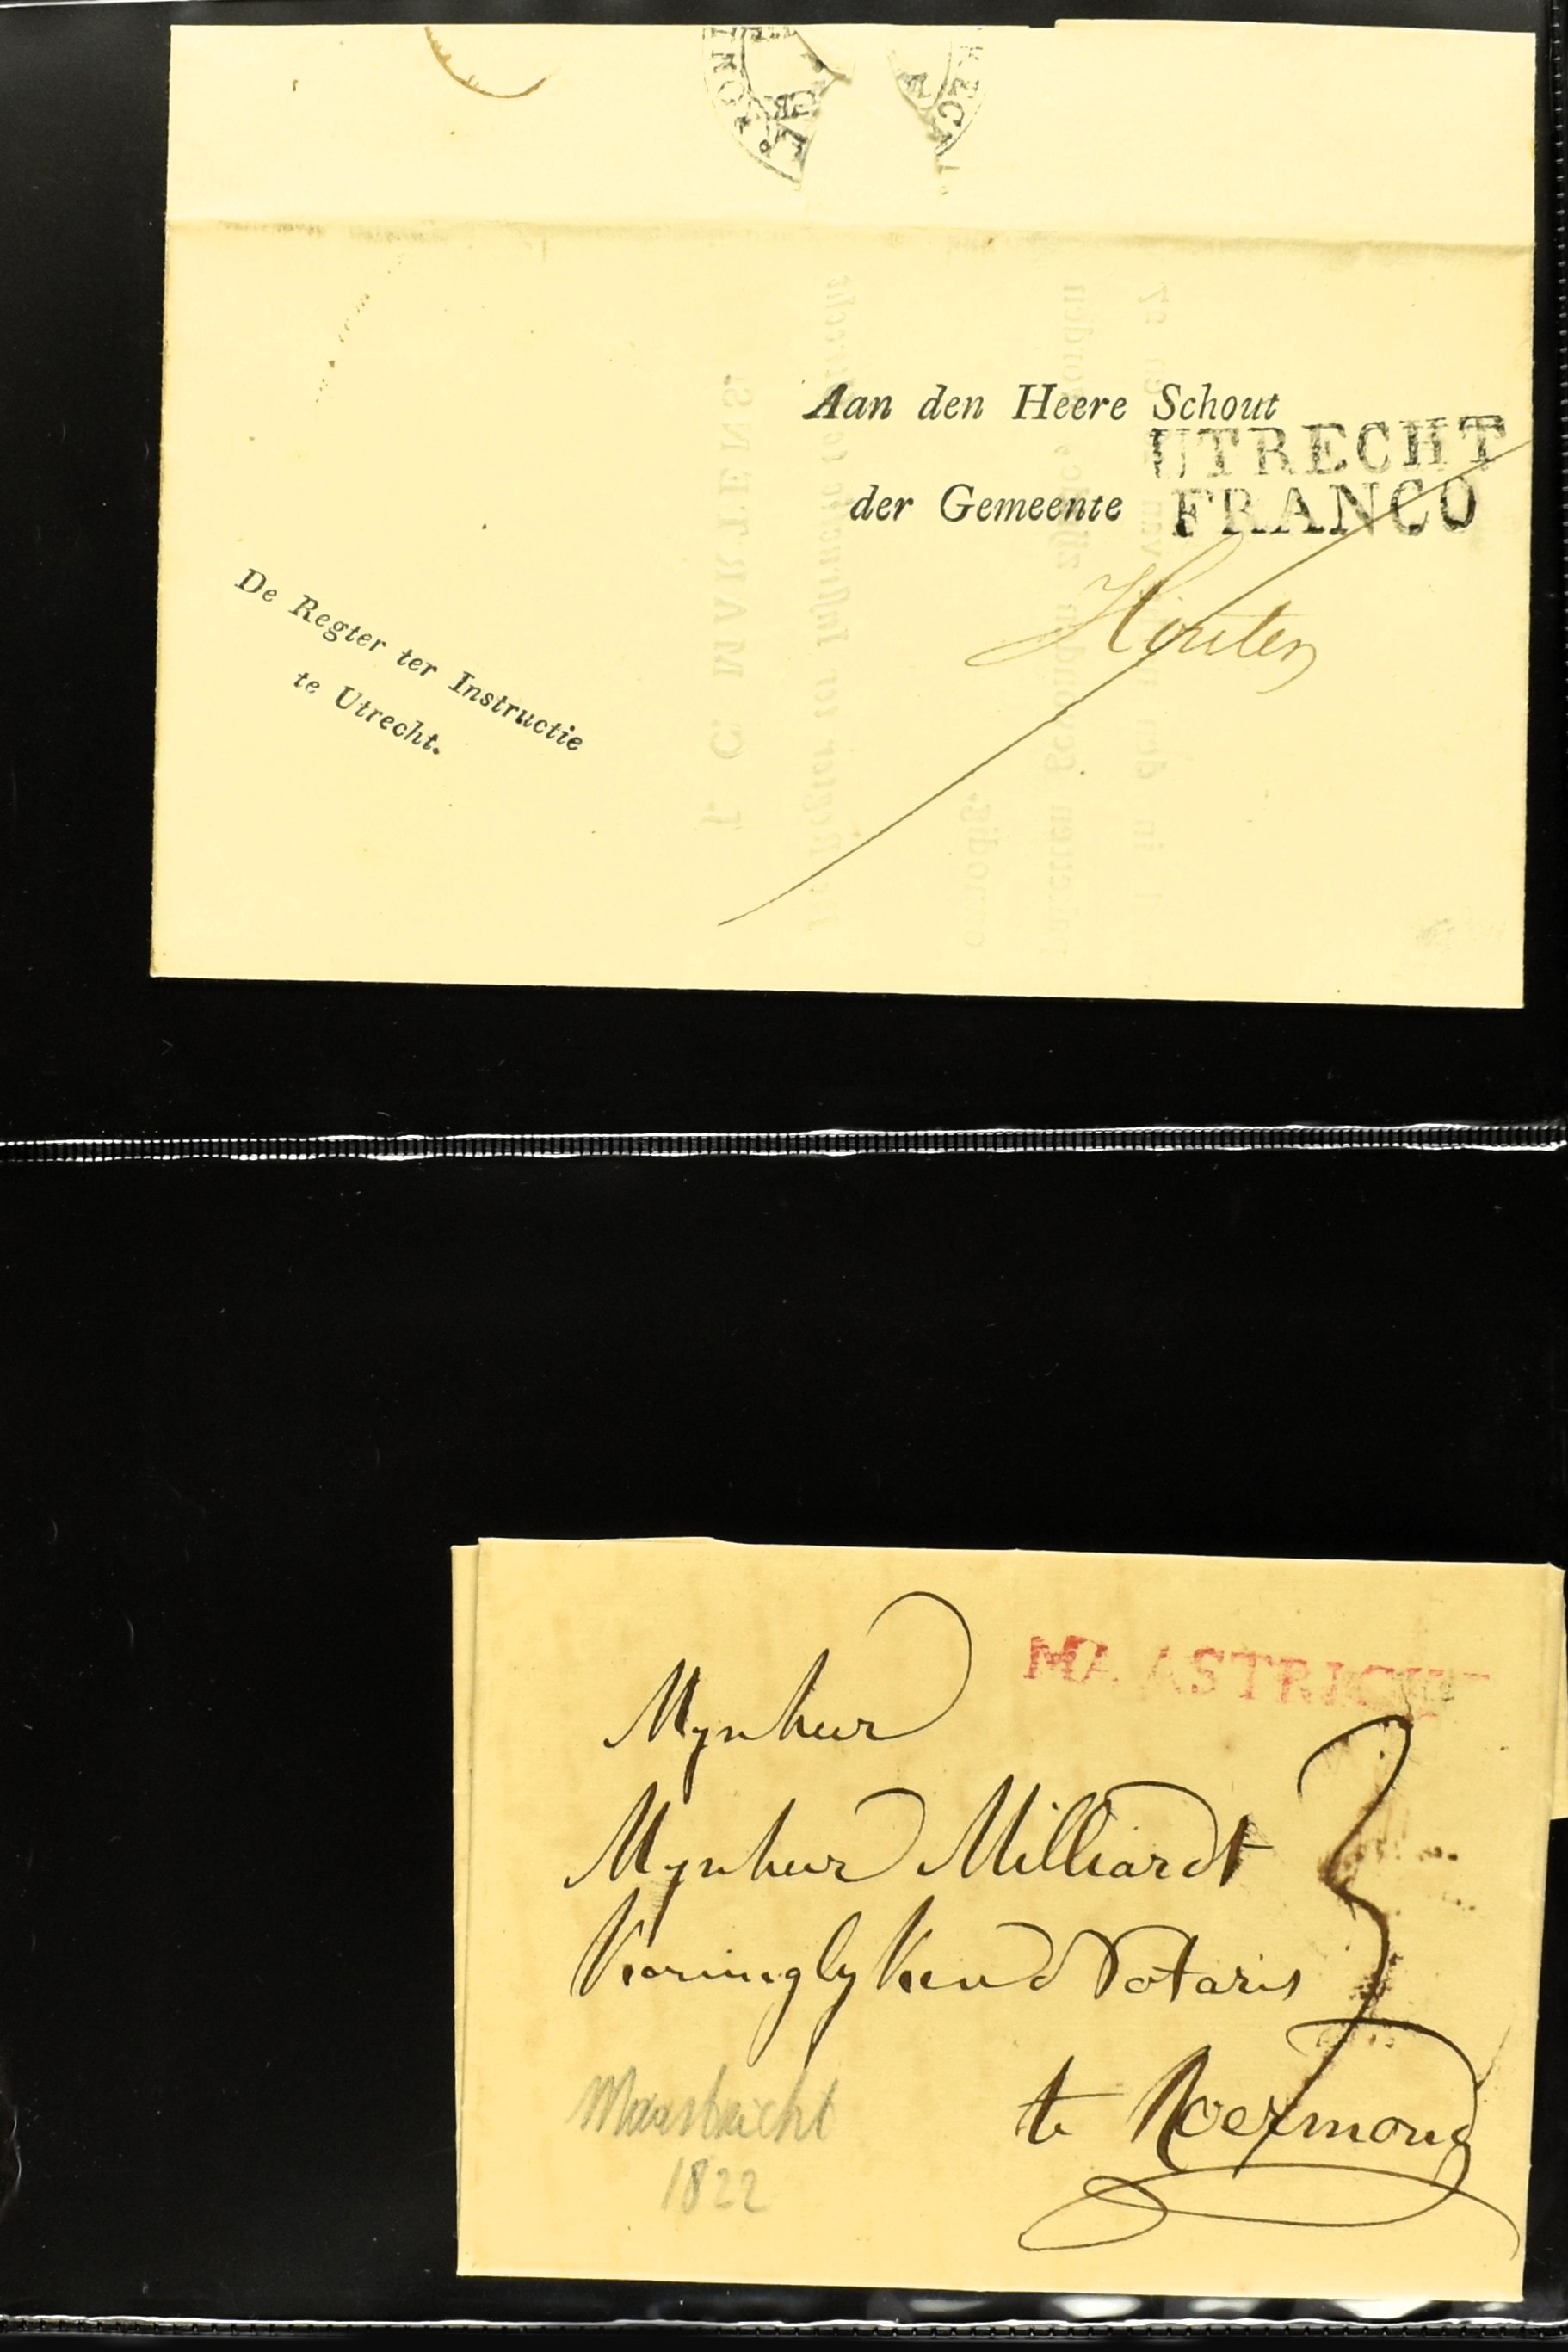 Aan den Heere Schout
UTRECHT
der Gemeente
FRANCO
Houten
De Regter ter Instructie
te Utrecht.
J. C. MARTENS.
MAASTRICHT
Mynheer
Mynheer Milliardt
Koninglyken Notaris
3
te Roermond
Maastricht
1822